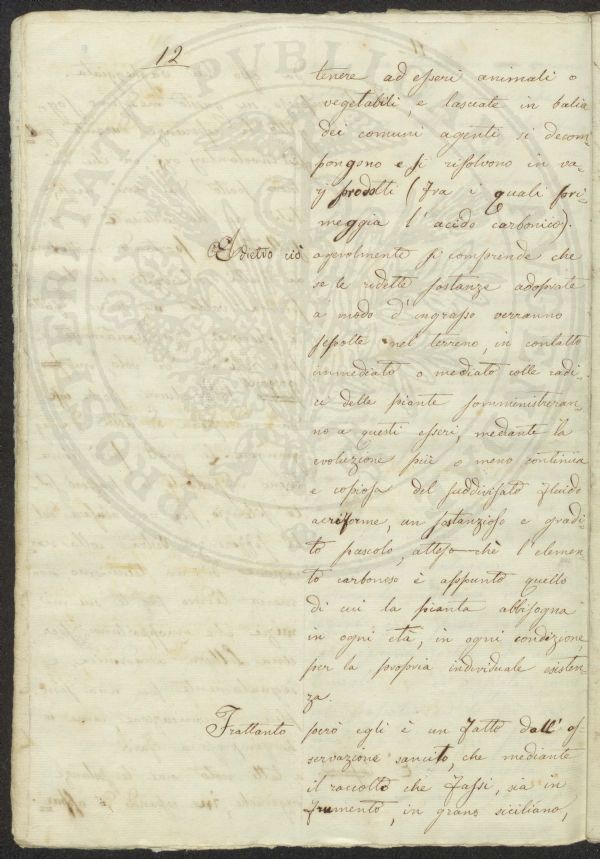 12
tenere ad esseri animali o
vegetabili, e lasciate in balia
dei comuni agenti si decom-
pongono e si risolvono in va-
rj prodotti (fra i quali pri-
meggia l'acido carbonico).
E dietro ciò agevolmente si comprende che
se le ridette sostanze adoprate
a modo d'ingrasso verranno
sepolte nel terreno, in contatto
immediato o mediato colle radi-
ci delle piante somministreran-
no a questi esseri, mediante la
evoluzione più o meno continua
e copiosa del suddivisato fluido
aeriforme, un sostanzioso e gradi-
to pascolo, atteso-chè l'elemen-
to carbonoso è appunto quello
di cui la pianta abbisogna
in ogni età, in ogni condizione
per la propria individuale esisten-
za.
Frattanto però egli è un fatto dall'os-
servazione sancito, che mediante
il raccolto che fassi, sia in
frumento, in grano siciliano,